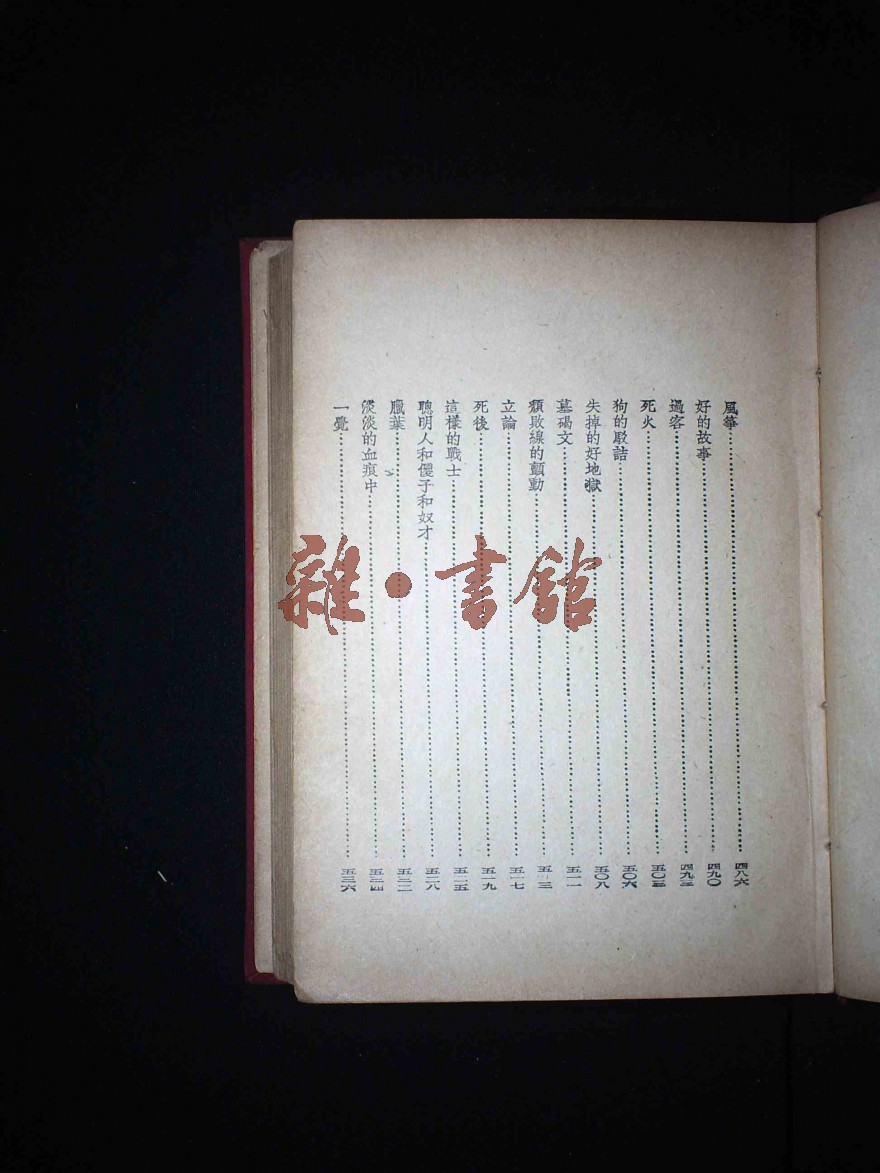 風箏 四八六
好的故事 四九〇
過客 四九三
死火 五〇三
狗的駁詰 五〇六
失掉的好地獄 五〇八
墓碣文 五一一
頹敗線的顫動 五一三
立論 五一七
死後 五一九
這樣的戰士 五二五
聰明人和傻子和奴才 五二八
臘葉 五三二
淡淡的血痕中 五三四
一覺 五三六
雜·書館